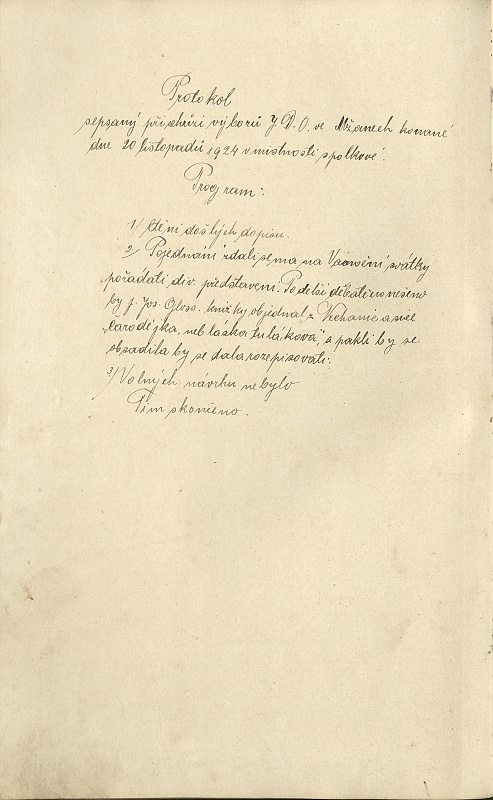 Protokol
sepsaný při schůzi výborů J. D. O. ve Mžanech konané
dne 20 listopadů 1924 v místnosti spolkové.
Program:
1/ Čtění došlých dopisu.
2/ Pojednání zdali se má na Vánoční svátky
pořádati div. představení. Po delší debatě usneseno
by p. Jos. knížky objednal z a sice
"Čarodějka, neb láska tuláková" a pakli by se
obsadila by se dala rozepisovati.
3/ Volných návrhu nebylo
Tím skončeno.